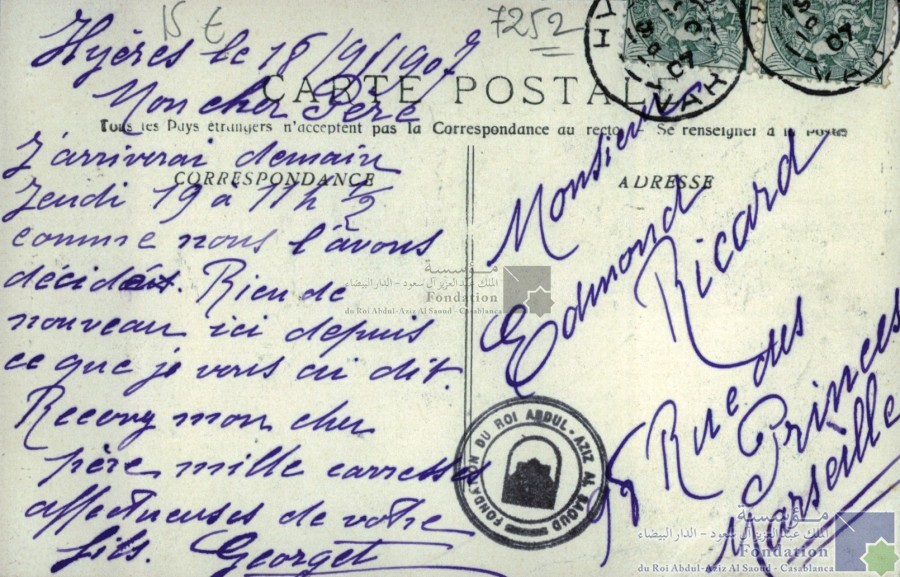 15 t
7252
Hyères le 18/9/1907
CARTE POSTALE
Mon cher Père
Tous les Pays étrangers n'acceptent pas la Correspondance au recto Se renseigner à la Poste
J'arriverai demain
CORRESPONDANCE
Jeudi 19 à 11 h ½
comme nous l'avons
décidé. Rien de
nouveau ici depuis
ce que je vous ai dit.
Recevez mon cher
père mille carresses
affectueuses de votre
fils. Georget
ADRESSE
Monsieur
Edmond
Ricard
Rue des
Princes
Marseille
VAR
07
VAR
07
مؤسسة
الملك عبد العزيز آل سعود - الدار البيضاء
Fondation
du Roi Abdul-Aziz Al Saoud - Casablanca
FONDATION DU ROI ABDUL-AZIZ AL SAOUD
مؤسسة
الملك عبد العزيز آل سعود - الدار البيضاء
Fondation
du Roi Abdul-Aziz Al Saoud - Casablanca